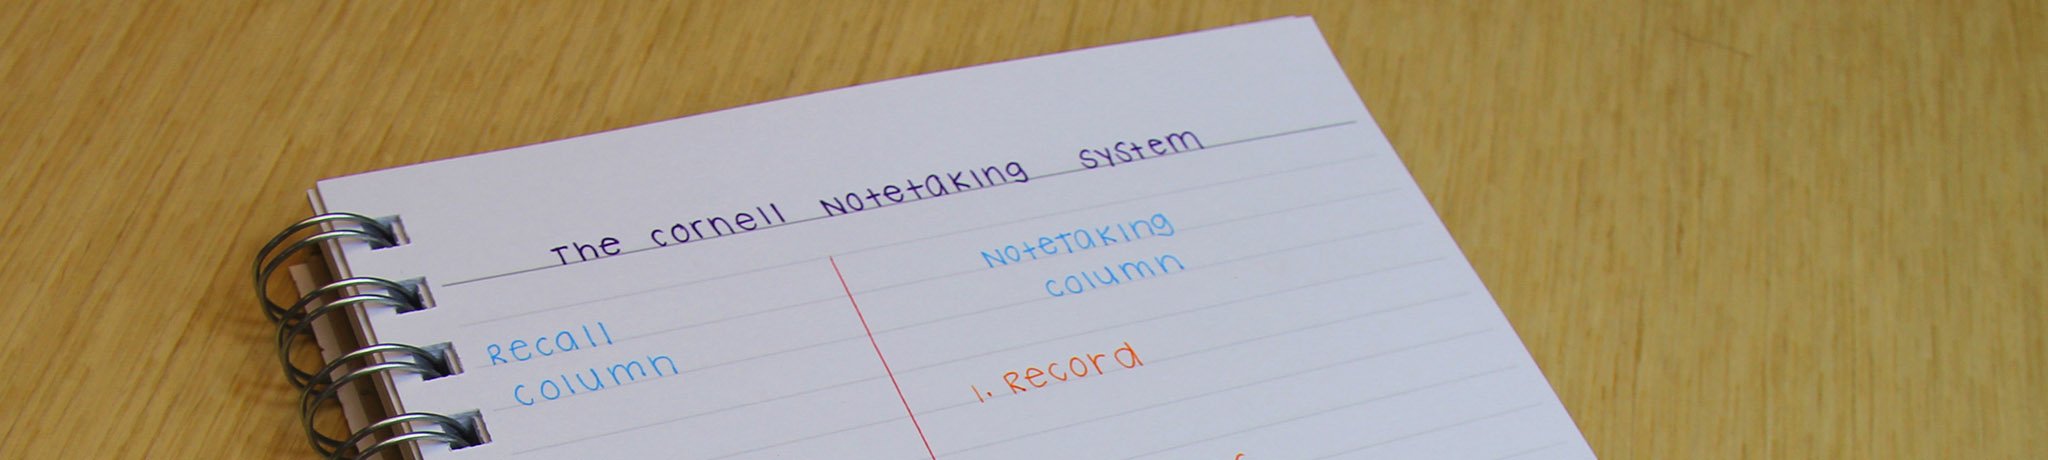 The cornell Notetaking system
Recall
column
Notetaking
column
1. Record